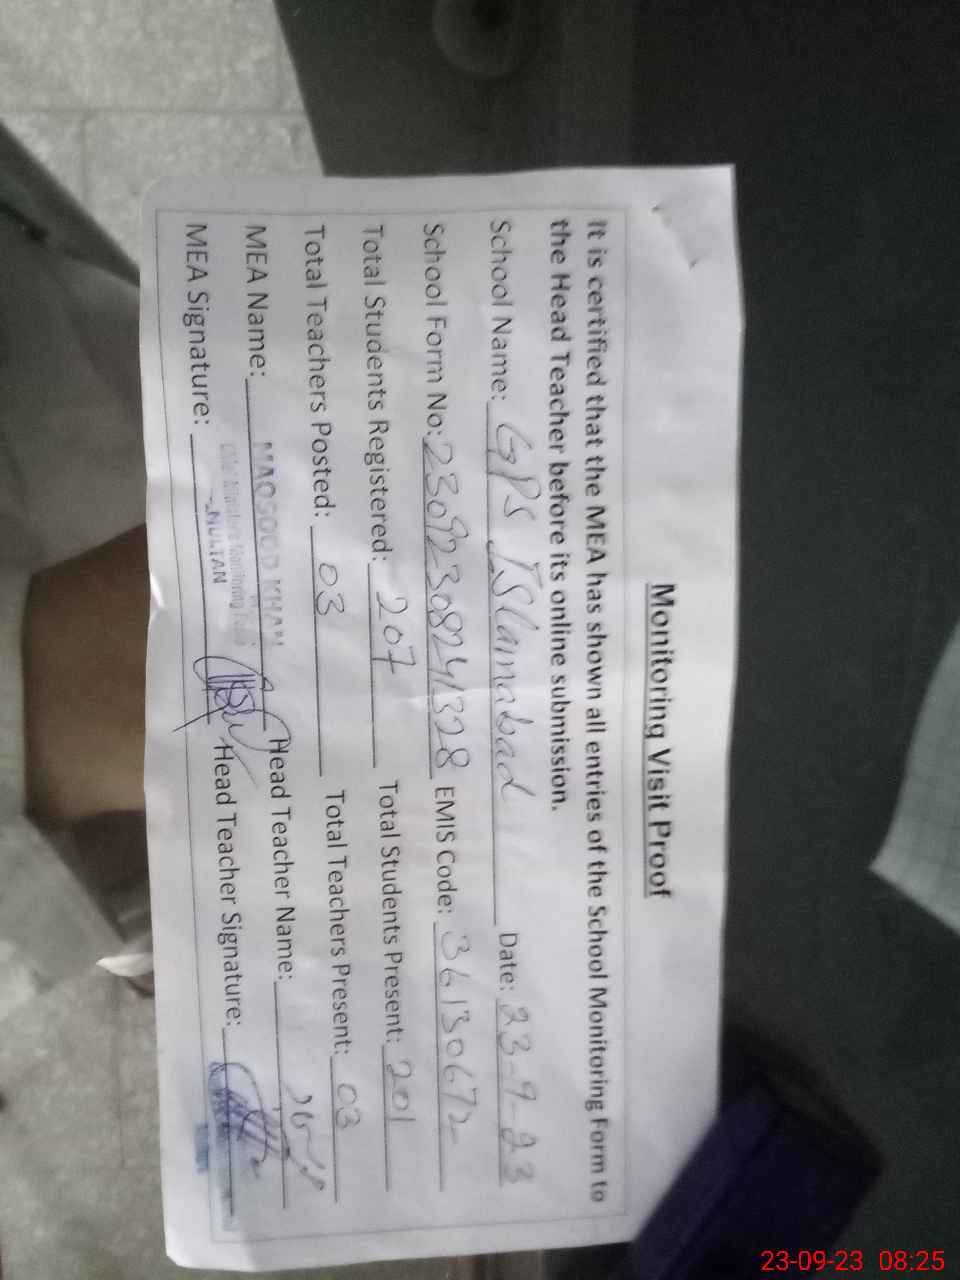 Monitoring Visit Proof
It is certified that the MEA has shown all entries of the School Monitoring Form to
the Head Teacher before its online submission.
School Name: GPS Islamabad Date: 23-9-23
School Form No: 23092308241328 EMIS Code: 36130672
Total Students Registered: 207 Total Students Present: 201
Total Teachers Posted: 03 Total Teachers Present: 03
MEA Name: MAQSOOD KHAN Head Teacher Name:
MEA Signature: MULTAN Head Teacher Signature:
23-09-23 08:25